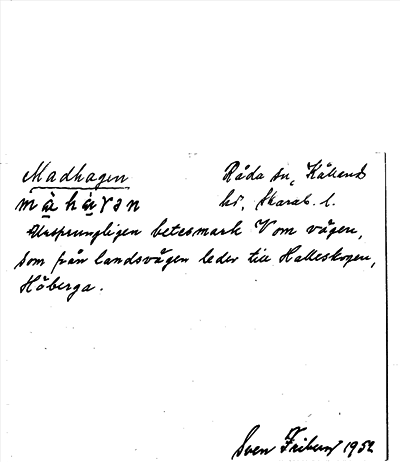 Madhagen Råda sn, Kållands
màhá̤ɤən hd, Skarab. l.
Ursprungligen betesmark V om vägen,
som från landsvägen leder till Halleskogen,
Höberga.
Sven 1952